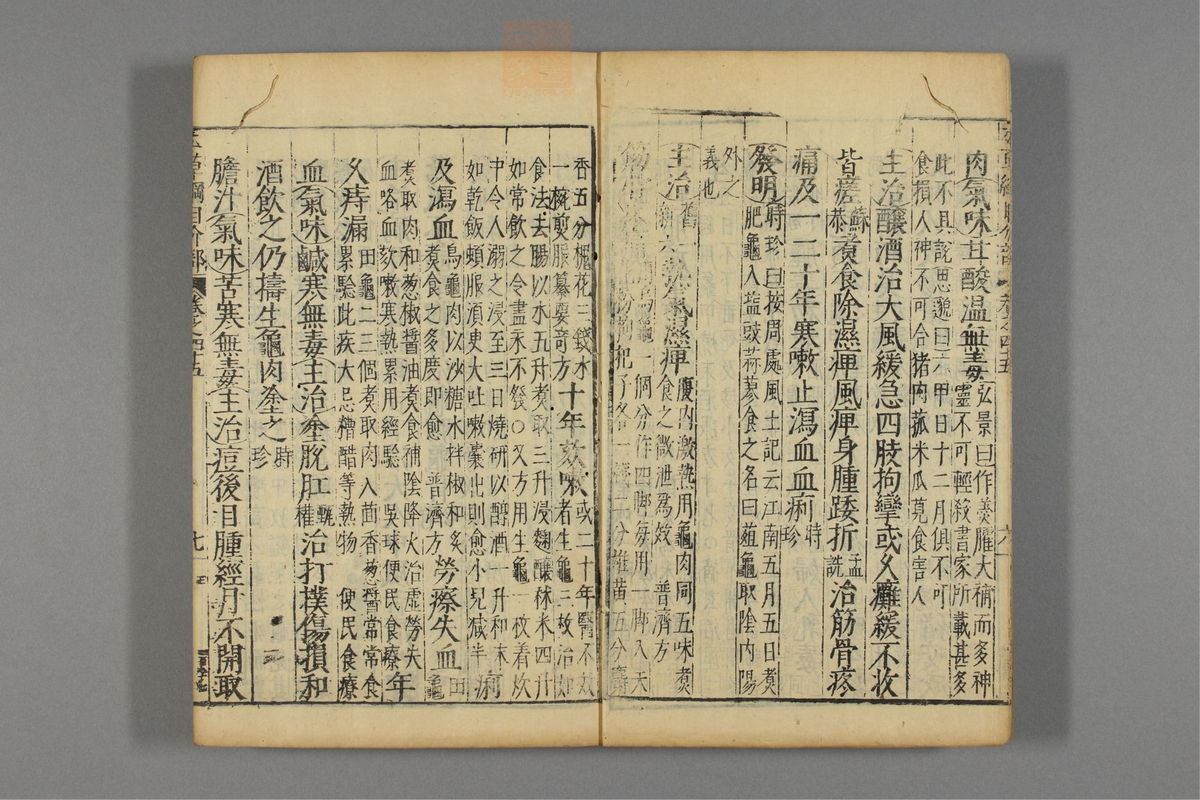 肉氣味甘酸温無毒弘景曰作羹臛大補而多神
靈不可輕殺書家所載甚多
此不具說思邈曰六甲日十二月俱不可
食損人神不可合猪肉菰米瓜莧食害人
主治釀酒治大風緩急四肢拘攣或久癱緩不收
皆瘥蘇恭煮食除濕痺風痺身腫踒折孟詵治筋骨疼
痛及一二十年寒嗽止瀉血血痢時珍
發明時珍曰按周處風土記云江南五月五日煮
肥龜入塩豉蒜蓼食之名曰葅龜取陰内陽
外之
義也
主治熱氣濕痺腹内激熱用龜肉同五味煮
食之微泄爲效 普濟方
一個分作四脚每用一脚入天
枸杞子各一錢二分雄黃五分麝
香五分槐花三錢水
一椀煎服纂要奇方十年欬嗽或二十年醫不效
者生龜三枚治如
食法去腸以水五升煮取三升浸麴釀秫米四升
如常飲之令盡永不發○又方用生龜一枚着坎
中令人溺之浸至三日燒研以醇酒一升和末
如乾飯頓服須臾大吐嗽囊出則愈小兒减半痢
及瀉血烏龜肉以沙糖水拌椒和炙
煮食之多度即愈 普濟方勞瘵失血田龜
煮取肉和葱椒醤油煮食補陰降火治虚勞失
血咯血欬嗽寒熱累用經驗 吳球便民食療年
久痔漏田龜二三個煮取肉入茴香葱醤常常食
累驗此疾大忌糟醋等熱物 便民食療
血氣味鹹寒無毒主治塗脫肛甄權治打撲傷損和
酒飲之仍擣生龜肉塗之時珍
膽汁氣味苦寒無毒主治痘後目腫經月不開取